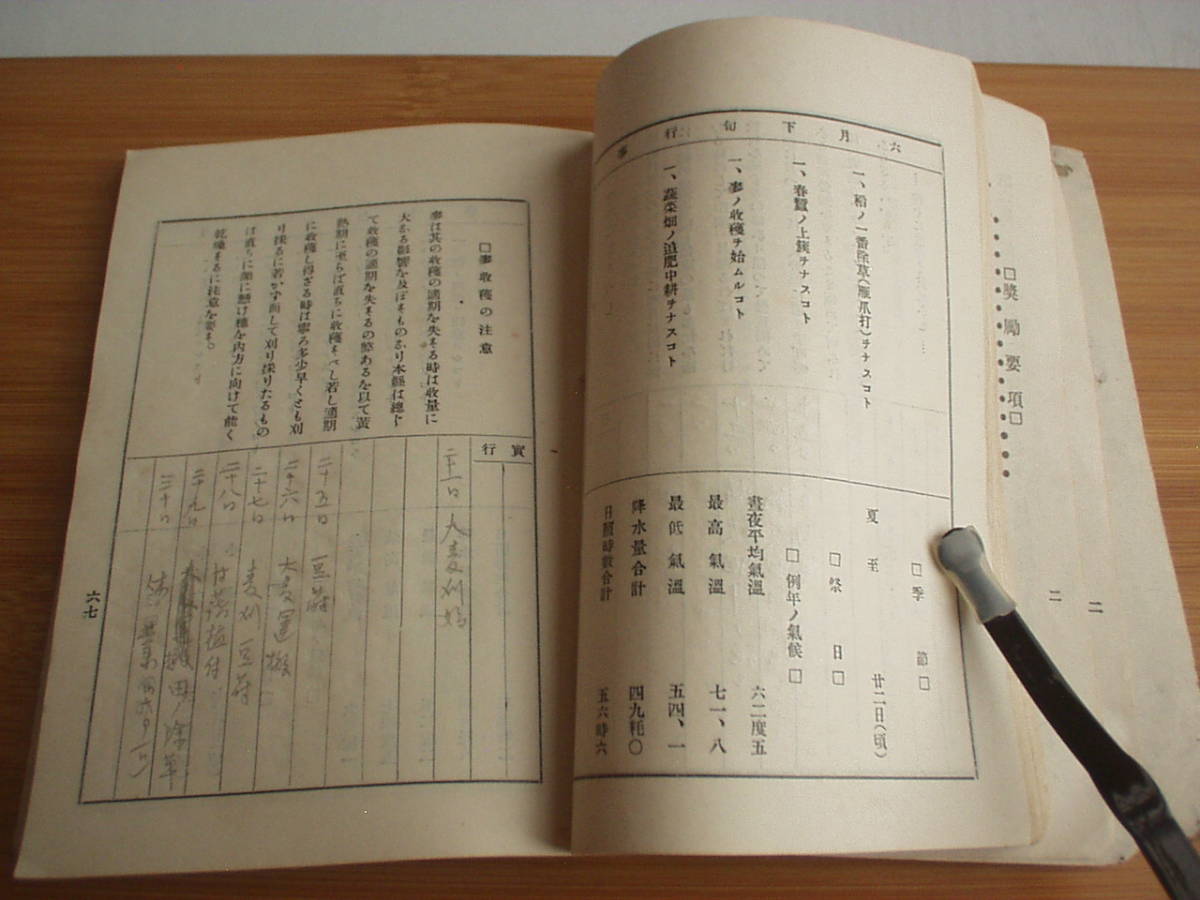 □獎勵要項□
二
二
六月下旬行事
一、稻ノ一番除草(雁爪打)ヲナスコト
一、春蠶ノ上簇ヲナスコト
一、麥ノ收穫ヲ始ムルコト
一、蔬菜畑ノ追肥中耕ヲナスコト
□季節□
夏至 廿二日(頃)
□祭日□
□例年ノ氣候□
晝夜平均氣溫 六二度五
最高氣溫 七一、八
最低氣溫 五四、一
降水量合計 四九粍〇
日照時數合計 五六時六
□麥收穫の注意
麥は其の收穫の適期を失する時は收量に
大なる影響を及ぼすものなり本縣は總じ
て收穫の適期を失するの弊あるを以て黃
熟期に至らば直ちに收穫すべし若し適期
に收穫し得ざる時は寧ろ多少早くとも刈
り採るに若かず而して刈り採りたるもの
は直ちに架に懸け穗を內方に向けて能く
乾燥するに注意を要す。
實行
二十一日 大麦刈始
二十五日 豆蒔
二十六日 大麦運搬
二十七日 麦刈豆蒔
二十八日 甘藷植付
二十九日
三十日
六七